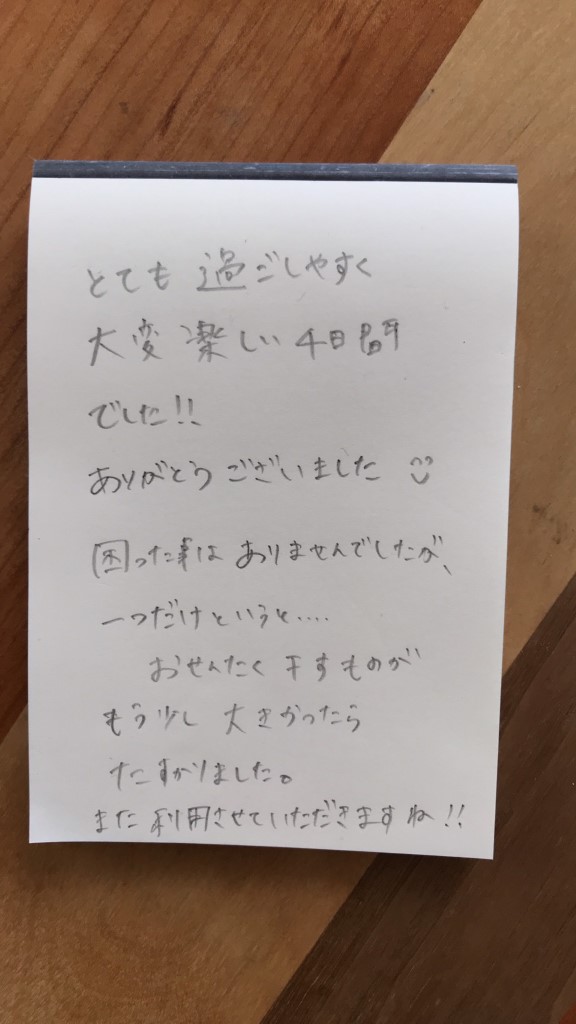 とても 過ごしやすく
大変 楽しい 4日間
でした!!
ありがとうございました
困った事は ありませんでしたが、
一つだけというと....
おせんたく 干すものが
もう少し 大きかったら
たすかりました。
また 利用させていただきますね!!